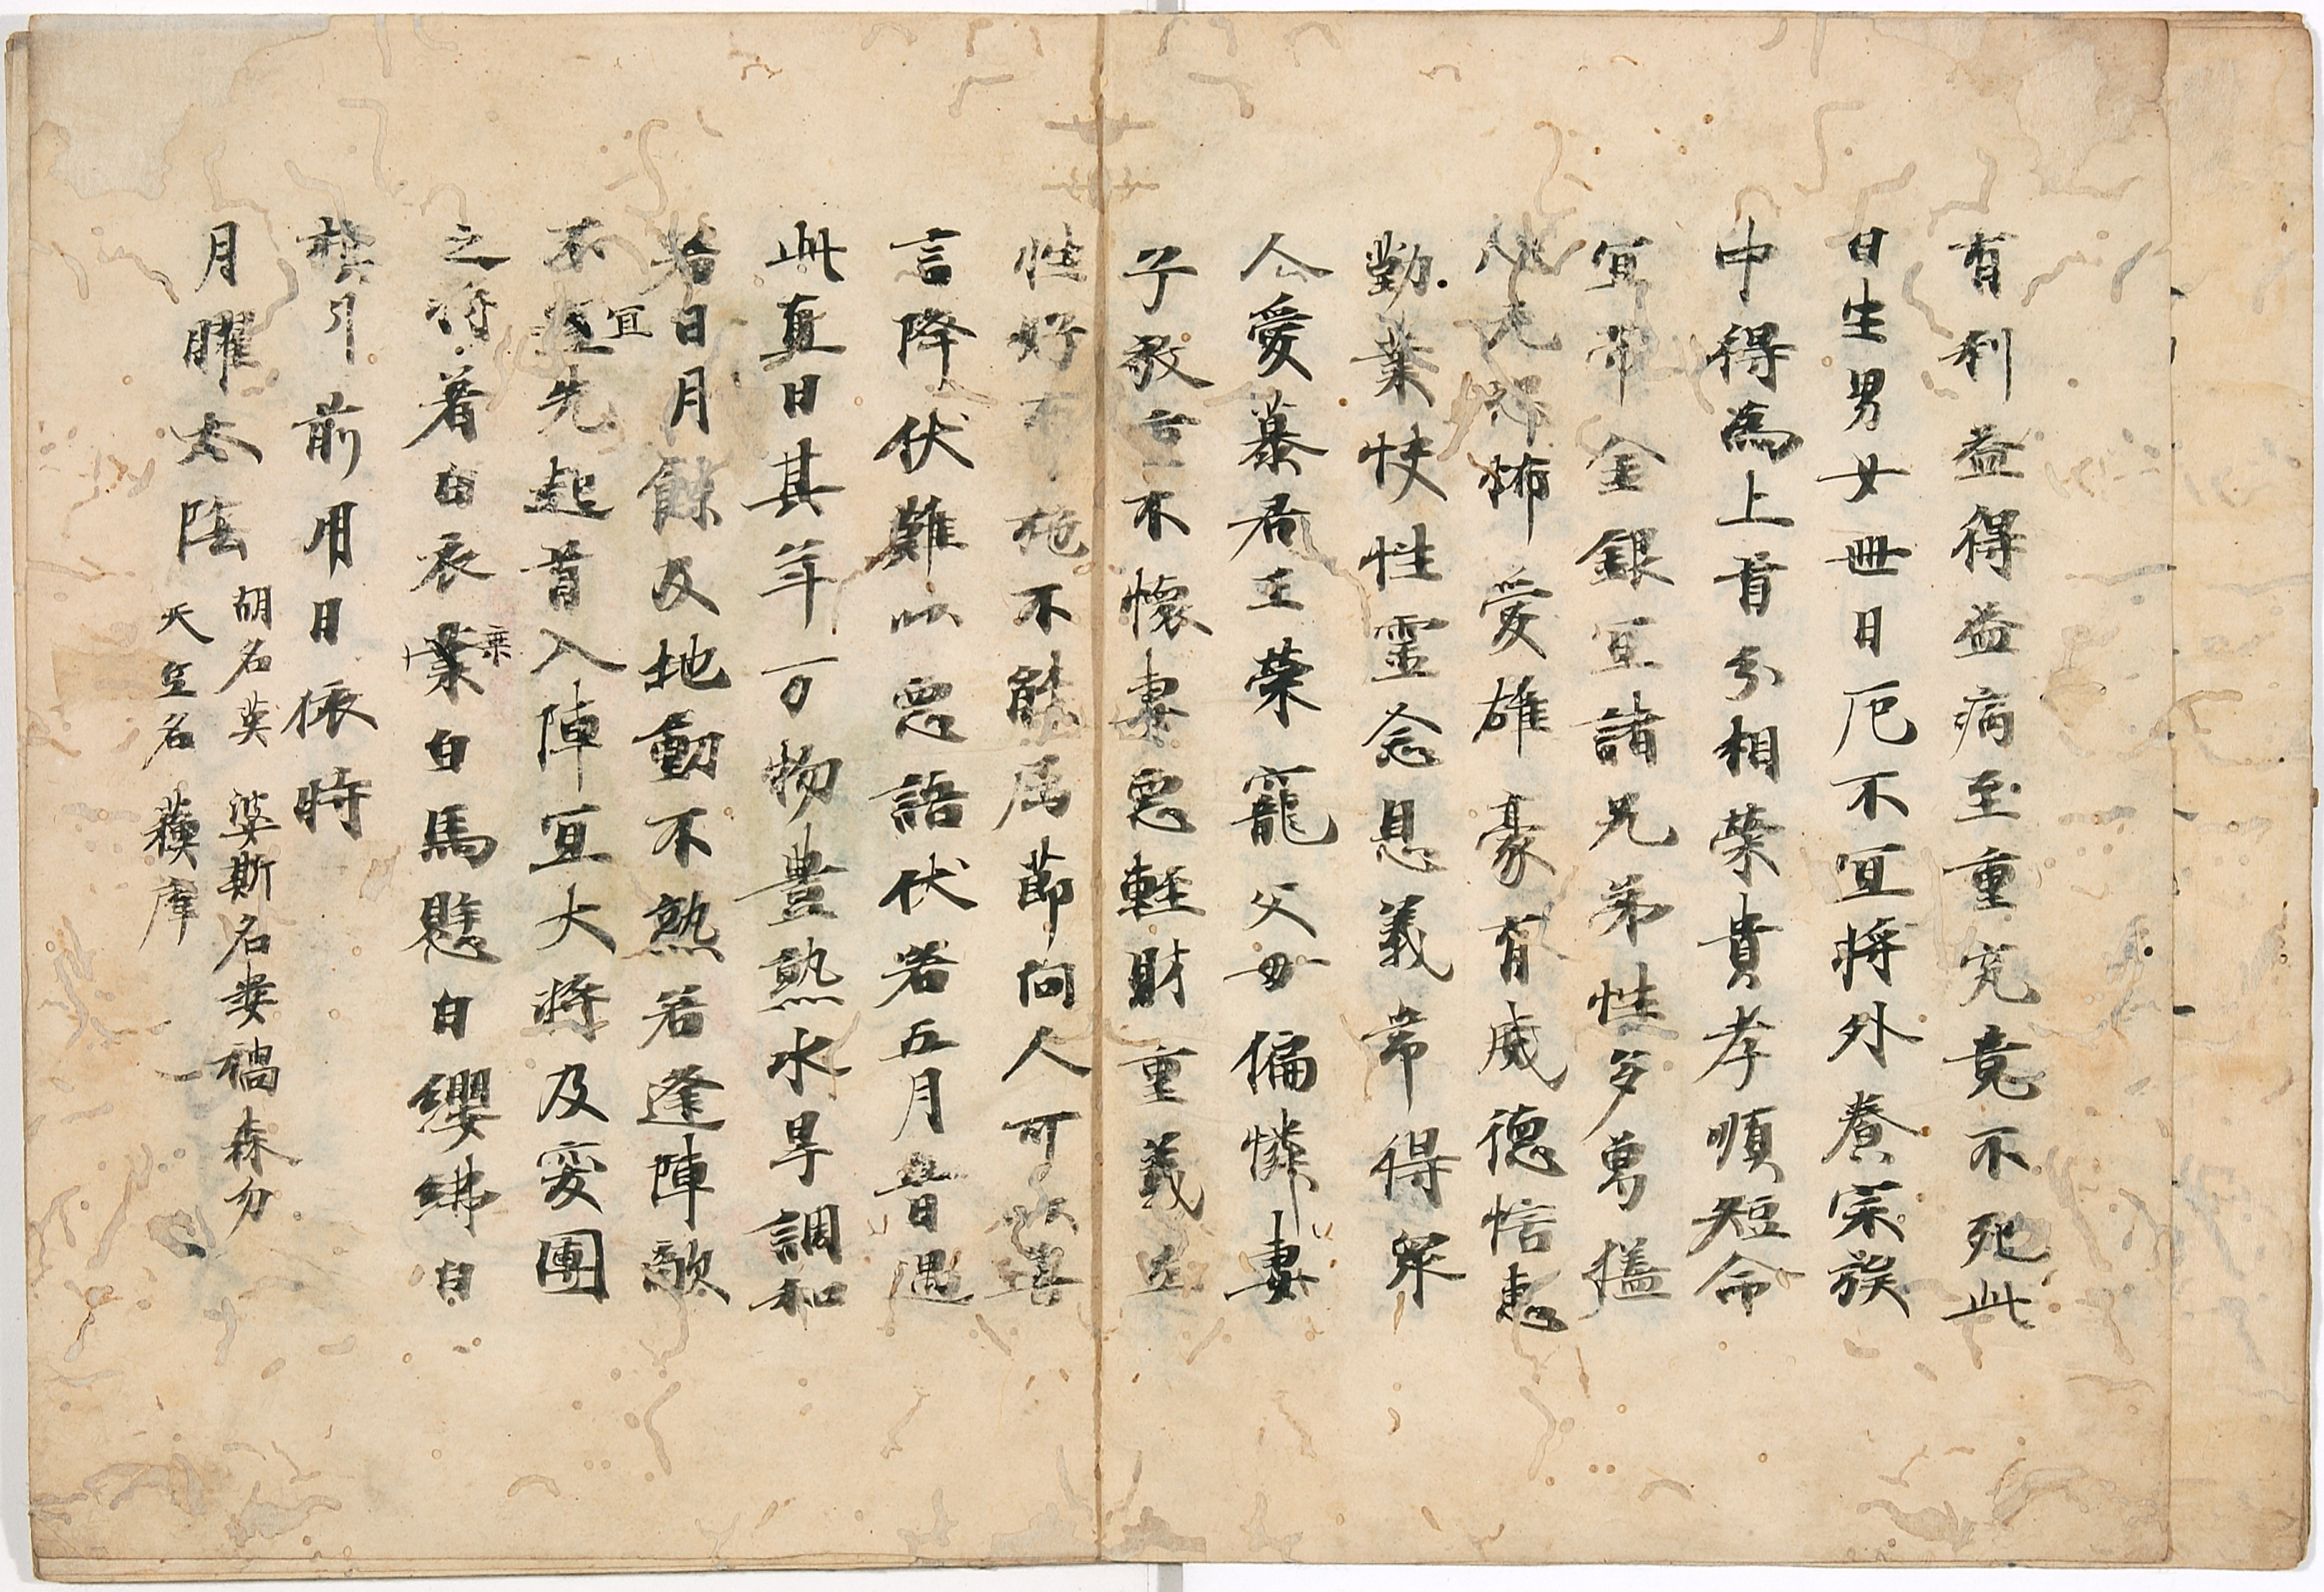 有利益得益病至重究竟不死此
日生男女卌日厄不宜将外養宗族
中得為上首分相榮貴孝順短命
宜帯金銀宜諸兄弟性多萬
怖愛雄豪有威德恪惠
勤業快性靈念恩義常得眾
人愛慕君王榮寵父母偏憐妻
子敬言不懷妻悪輕財重義
性好布施不能屈節向人可
言降伏難以悪語伏若五月昔日遇
此直日其年万物豊熟水旱調和
若日月餘及地動不熟若逢陣敵
不宜先起首入陣宜大将及変團
宜
之将着白衣業白馬懸白纓紼白
乗
旗引前用日依時
月曜太陰
胡名莫 婆斯名婁禍森勿
天竺名 蘓摩